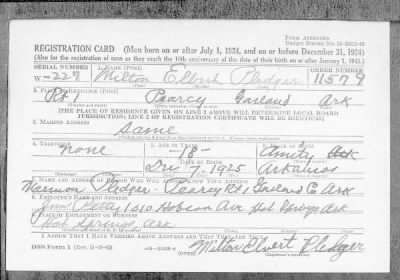 FORM APPROVED
REGISTRATION CARD (Men born on or after July 1, 1924, and on or before December 31, 1924)
(Also for the registration of men as they reach the 18th anniversary of the date of their birth on or after January 1, 1943.)
SERIAL NUMBER 1. NAME (Print) ORDER NUMBER
W-229 Milton Elbert Pledger 11579
(First) (Middle) (Last)
2. PLACE OF RESIDENCE (Print)
Rt 1 Pearcy Garland Ark
(THE PLACE OF RESIDENCE GIVEN ON LINE 2 ABOVE WILL DETERMINE LOCAL BOARD
JURISDICTION; LINE 2 OF REGISTRATION CERTIFICATE WILL BE IDENTICAL)
3. MAILING ADDRESS
Same
4. TELEPHONE 5. AGE IN YEARS 6. PLACE OF BIRTH
none 18 Amity Ark
DATE OF BIRTH
Dec 7, 1925 Arkansas
7. NAME AND ADDRESS OF PERSON WHO WILL ALWAYS KNOW YOUR ADDRESS
Harmon Pledger - Pearcy Rt 1 Garland Co Ark
8. EMPLOYER'S NAME AND ADDRESS
Jim Petty 1010 Hobson Ave Hot Springs Ark
9. PLACE OF EMPLOYMENT OR BUSINESS
Hot Springs, Ark
I AFFIRM THAT I HAVE VERIFIED ABOVE ANSWERS AND THAT THEY ARE TRUE.
DSS Form 1
Milton Elvert Pledger